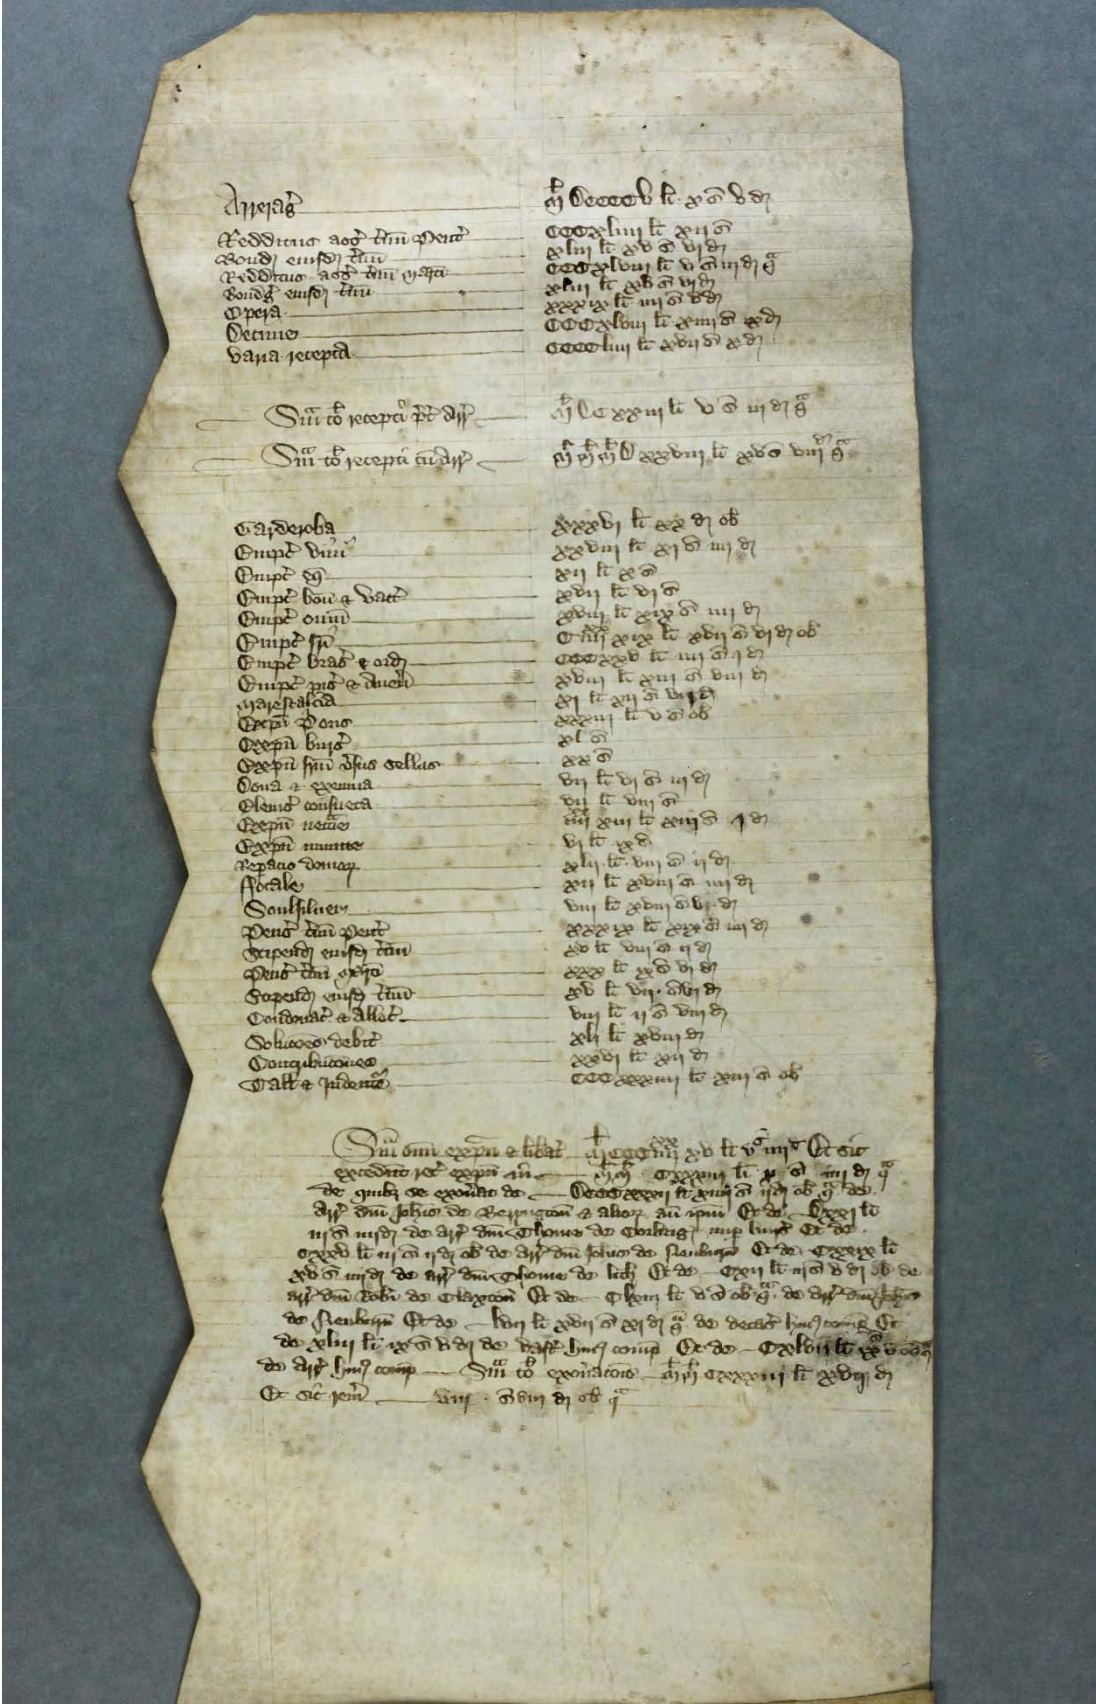 Arrerag' m^l DCCCCv li. x s v d
Redditus assis' t'm Pent' CCCxliiij li xij s
Bond' eiusd' t'm xliij li xv s vj d
Redditus assis' t'm Mart' CCCxlviij li v s iij d q^a
Bondg' eiusd' t'm xliij li xv s vj d
Opera xxxix li iiij s v d
Decime CCCxlviij li xiiij s ix d
Varia recepta CCCCliij li xvij s x d
Sum^a to^l recepti p't' arr' m^l DCxxiij li v s iij d q^a
Sum^a to^l recepti cu' arr' m^l m^l m^l Dxxviij li xv s viij d q^a
Garderoba xxxvj li xx d ob
Empt' vini xxviij li xj s iiij d
Empt' xij li x s
Empt' bou' & vacc' xvij li vj s
Empt' ouiu' xviij li xix s iiij d
Empt' fr'i C iiij^xx xix li xvij s vj d ob
Empt' bras' & ord' CCCxxv li iiij s j d
Empt' pis' & auen' xviij li xiij s viij d
Marescalcia xj li xij s vij d
Exp'n Prioris xxxiij li v s ob
Exp'n burs' xl s
Exp'n fr'm v'sus cellas xx s
Dona & exennia vij li vj s iij d
Elemos' consueta vij li viij s
Exp'n necc'ie iiij^xx xiij li xiij s j d
Exp'n minute vj li ix d
Repacio domor' xlij li viij s ij d
Focale xij li xviij s iiij d
Soulsiluer viij li xviij s vj d
Pens' t'm Pent' xxxix li xix s iiij d
Stipend' eiusd' t'm xv li viij s ij d
Pens' t'm Mart' xxx li ix s vj d
Stipend' eiusd' t'm xv li vij s vj d
Condonac' & alloc' viij li ij s viij d
Soluc'oes debit' xlj li xviij d
Contribuc'ones xxvj li xij d
Tall' & Indent' CCCxxxiiij li xiij s ob
Sum^a om' exp'n & lib'at' m^l CCC iiij^xx xv li v s iiij d Et sic
excedunt rec' exp'n in m^l m^l Cxxxiij li x s iiij d q^a
de quib' se exon'at de DCCCxxxij li xiiij s ij d ob q^a de
arr' d'ni Joh'is de Beryngton & alior' an' ip'm Et de Cxxj li
iij s iiij d de arr' d'ni Thome de Corbrig' nup' burs' Et de
Cxxv li iij s ij d ob de arr' d'ni Joh'is de Neuburn' Et de Cxxix li
xv s iiij d de arr' d'ni Thome de Et de Cxij li iij s v d ob de
arr' d'ni Rob'ti de Claxton Et de Clxiij li v s ob q^a de arr' d'ni Joh'is
de Neuburn Et de lvij li xvij s xj d q^a de decas' hui' comp' Et
de xliij li ix s v d de vast' hui' comp' Et de Cxlvij li
de arr' hui' comp' Sum^a to^l exon'acois m^l m^l Cxxxiij li xviij d
Et sic rem' viij s viij d ob q^a